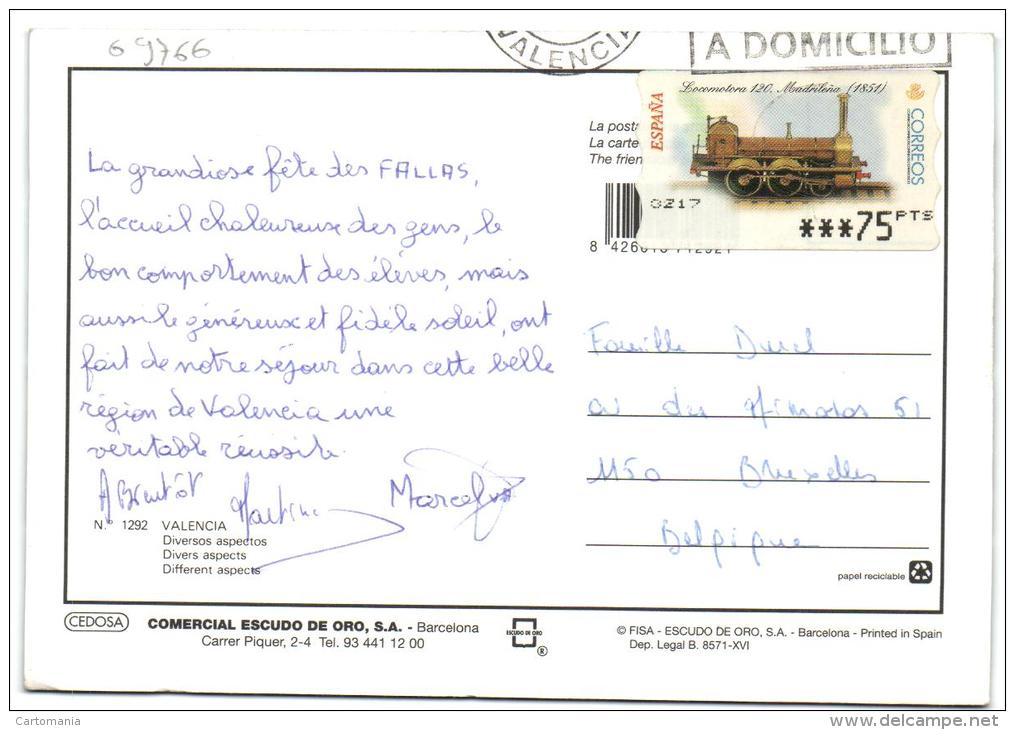 69766
VALENCIA
A DOMICILIO
Locomotora 120. Madrileña (1851)
ESPAÑA
CORREOS
0217
***75 PTS
La posta
La carte
The frien
8 426
La grandiose fête des FALLAS,
l'accueil chaleureux des gens, le
bon comportement des élèves, mais
aussi le généreux et fidèle soleil, ont
fait de notre séjour dans cette belle
région de Valencia une
véritable réussite.
A Bientôt Martine Marcel
Famille
av des Mimosas 51
1150 Bruxelles
Belgique
N.º 1292 VALENCIA
Diversos aspectos
Divers aspects
Different aspects
papel reciclable
CEDOSA
COMERCIAL ESCUDO DE ORO, S.A. - Barcelona
Carrer Piquer, 2-4 Tel. 93 441 12 00
ESCUDO DE ORO
®
© FISA - ESCUDO DE ORO, S.A. - Barcelona - Printed in Spain
Dep. Legal B. 8571-XVI
Cartomania
www.delcampe.net